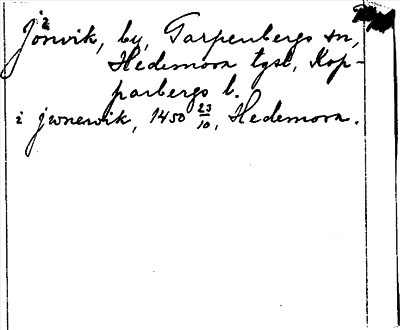 Jönvik, by, Garpenbergs sn,
Hedemora tgsl, Kop-
parbergs l.
i jwnewik, 1450 23/10, Hedemora.